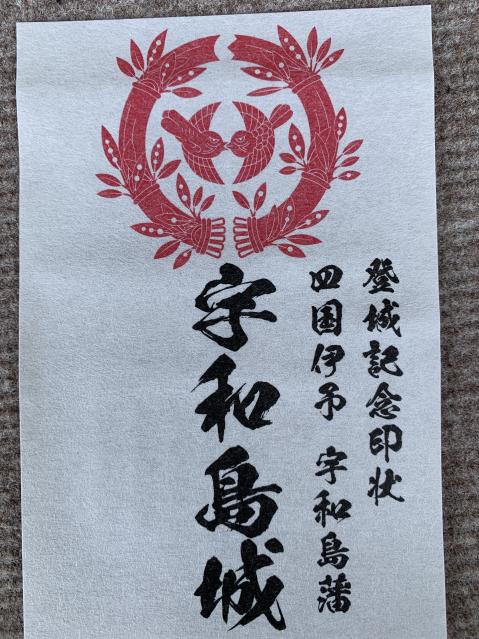 登城記念印状
四国伊予 宇和島藩
宇和島城